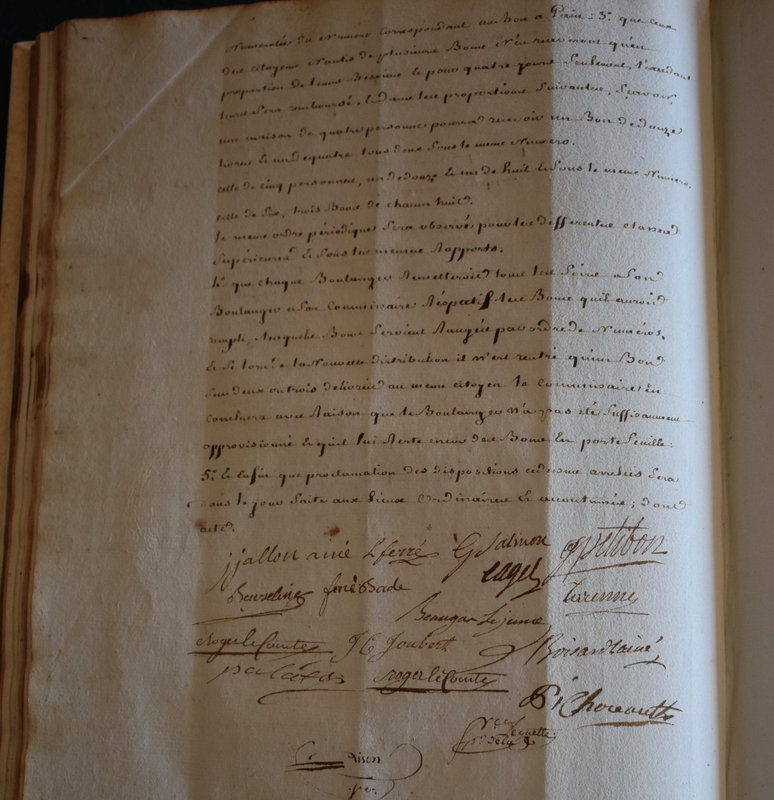 Numerotés du Numero correspondant au Bon a Pain: 3.º que ceux
des citoyens Nantis de plusieurs Bons N'en recevront qu'en
proportion de leurs Besoins et pour quatre jours seulement, l'excedant
leur sera remboursé. Et dans les proportions suivantes, sçavoir,
une maison de quatre personnes pourra recevoir un Bon de douze
livres et un de quatre tous deux sous le meme Numero.
celle de cinq personnes, un de douze et un de huit et sous le meme Numero.
celle de six, trois Bons de chacun huit.
le meme ordre périodique sera observé pour les differentes classes
Supérieures et sous les memes Rapports.
4.º que chaque Boulanger Remettroit tous les soirs a son
Boulanger a son Commissaire Réspectif les Bons qu'il auroit
rempli, lesquels Bons seroient Rangés par ordre de Numeros,
Et si lors de la Nouvelle distribution il n'est rentré qu'un Bon
sur deux ou trois delivrés au meme citoyen le Commissaire En
Conclura avec Raison que le Boulanger n'a pas été suffisamment
approvisionné et qu'il lui Reste encor des Bons En porte feuille.
5.º Et Enfin que proclamation des dispositions cidessus arretées sera
dans le jour faite aux Lieux Ordinaires et accoutumés; dont
acte.
jjallon ainé Lferré G Salmon gpetitbon
Beuzelin René Bade eager turenne
Beaugar Lejeune
Roger le Comte J E Joubert Boisard ainé
Roger le Comte
P. Choreault